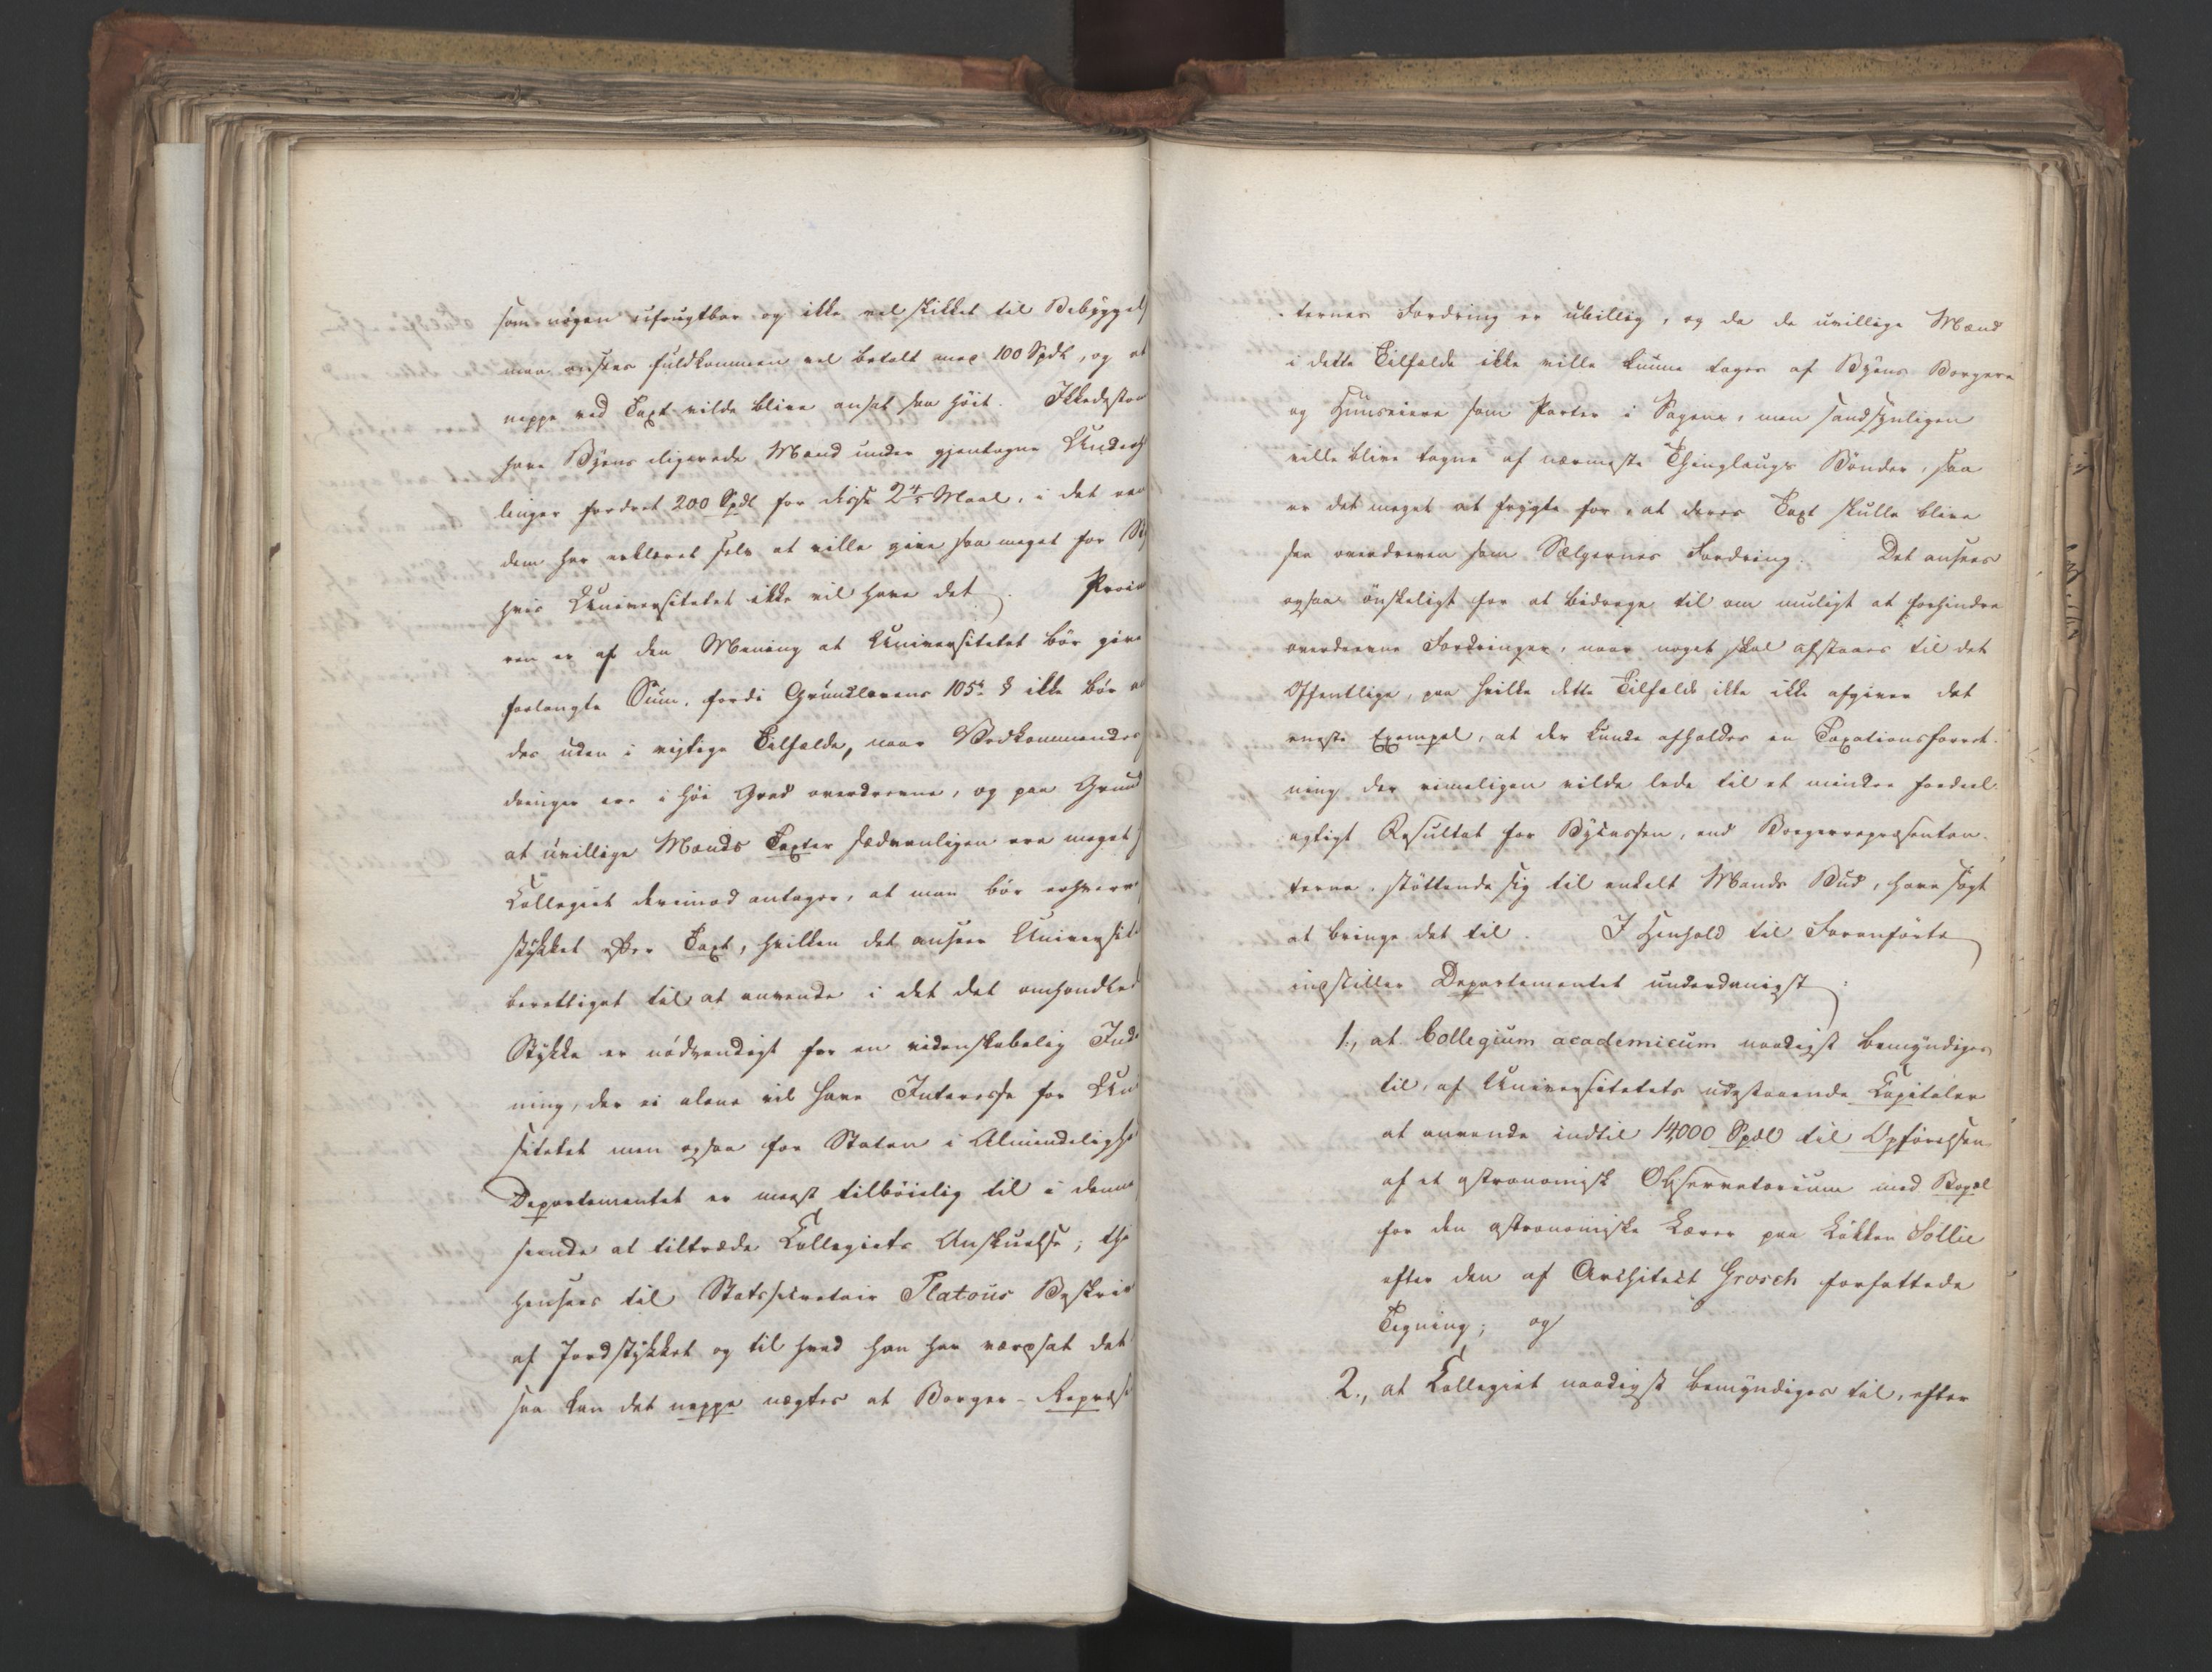 som nøgen ufrugtbar og ikke vel skikket til Bebyggels
maa ansees fuldkommen vel betalt med 100 Spdl, og at
neppe ved Taxt vilde blive ansat saa høit. Ikkedesto
have Byens eligerede Mænd under gjentagne Underh
linger fordret 200 Spdl for disse 2 4/5 Maal, i det een
dem har erklæret selv at ville give saa meget for St
hvis Universitetet ikke vil have det. Proca
ren er af den Mening at Universitetet bør give
forlangte Sum, fordi Grundlovens 105te § ikke bør
des uden i vigtige Tilfælde, naar Vedkommendes
dringer ere i høi Grad overdrevne, og paa Grund
at uvillige Mænds Taxter sædvanligen ere meget
Kollegiet derimod antager, at man bør erhverve
stykket efter Taxt, hvilken det anseer Universit
berettiget til at anvende i det det omhandled
Stykke er nødvendigt for en videnskabelig Ind
ning, der ei alene vil have Interesse for Un
sitetet men ogsaa for Staten i Almindelighe
Departementet er meest tilbøielig til i denne
seende at tiltræde Kollegiets Anskuelse; th
hensees til Statssekretair Platous Beskriv
af Jordstykket og til hvad han har værdsat det
saa kan det neppe nægtes at Borger-Repræs
ternes Fordring er ubillig, og da de uvillige Mænd
i dette Tilfælde ikke ville kunne tages af Byens Borgere
og Huuseiere som Parter i Sagen, men sandsynligen
ville blive tagne af nærmeste Thinglaugs Bønder, saa
er det meget at frygte for, at deres Taxt skulle blive
saa overdreven som Sælgernes Fordring. Det ansees
ogsaa ønskeligt for at bidrage til om muligt at forhindre
overdrevne Fordringer, naar noget skal afstaaes til det
Offentlige, paa hvilke dette Tilfælde ikke ikke afgiver det
eneste Exempel, at der kunde afholdes en Taxationsforret-
ning der rimeligen vilde lede til et mindre fordeel-
agtigt Resultat for Bykassen, end Borgerrepræsentan-
terne, støttende sig til enkelt Mands Bud, have søgt
at bringe det til. I Henhold til Foranførte
indstiller Departementet underdanigst:
1., at Collegium academicum naadigst bemyndiges
til, af Universitetets udestaaende Kapitaler
at anvende indtil 14,000 Spdl til Opførelsen
af et astronomisk Observatorium med Bopæl
for den astronomiske Lærer paa Løkken Sollie
efter den af Architect Grosch forfattede
Tegning; og
2., at Kollegiet naadigst bemyndiges til, efter